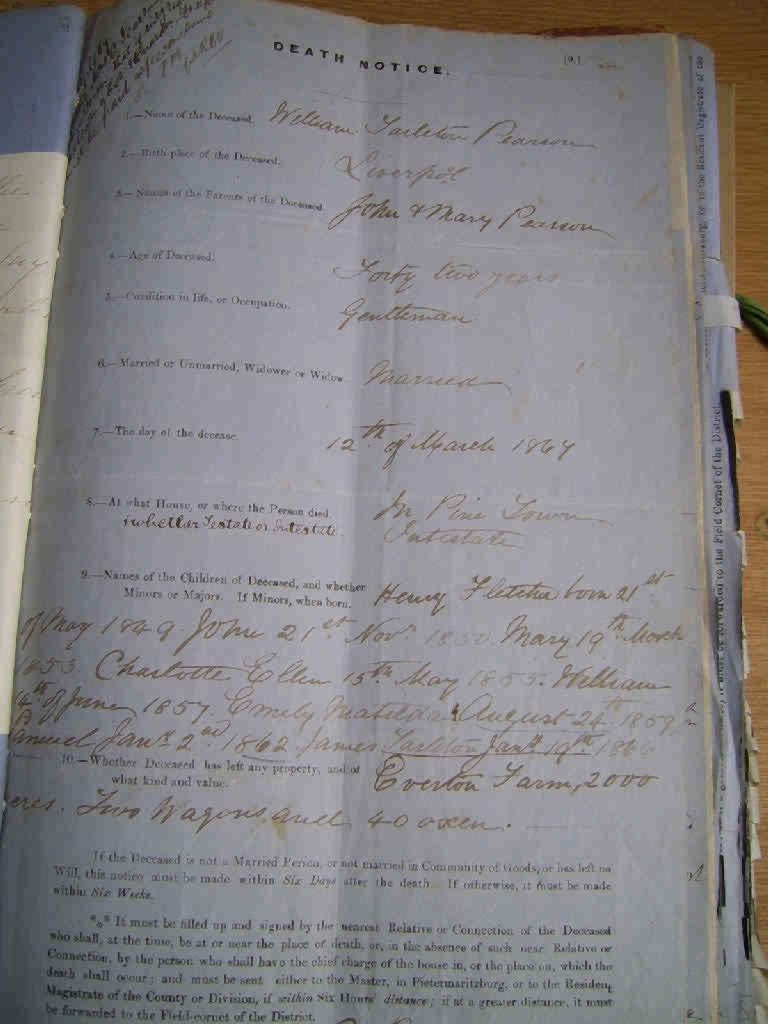 DEATH NOTICE.
1.—Name of the Deceased. William Tarleton Pearson
2.—Birth place of the Deceased. Liverpol
3.—Names of the Parents of the Deceased. John & Mary Pearson
4.—Age of Deceased. Forty two years
5.—Condition in life, or Occupation. Gentleman
6.—Married or Unmarried, Widower or Widow. Married
7.—The day of the decease. 12th of March 1867
8.—At what House, or where the Person died. In Pine Town
& whether Testate or Intestate. Intestate
9.—Names of the Children of Deceased, and whether
Minors or Majors. If Minors, when born. Henry Fletcher born 21st
of May 1849. John 21st Novr 1850. Mary 19th March
1853. Charlotte Ellen 15th May 1855. William
14th of June 1857. Emily Matilda August 24th 1859,
Jany 2nd 1862 James Tarleton Jany 19th
10.—Whether Deceased has left any property, and of
what kind and value. Everton Farm, 2000
acres. Two Wagons and 40 oxen.
If the Deceased is not a Married Person, or not married in Community of Goods, or has left no
Will, this notice must be made within Six Days after the death. If otherwise, it must be made
within Six Weeks.
*** It must be filled up and signed by the nearest Relative or Connection of the Deceased
who shall, at the time, be at or near the place of death, or, in the absence of such near Relative or
Connection, by the person who shall have the chief charge of the house in, or the place on, which the
death shall occur; and must be sent either to the Master, in Pietermaritzburg, or to the Resident
Magistrate of the County or Division, if within Six Hours' distance; if at a greater distance, it must
be forwarded to the Field-cornet of the District.
or to the Resident Magistrate of the
it must be forwarded to the Field Cornet of the District.